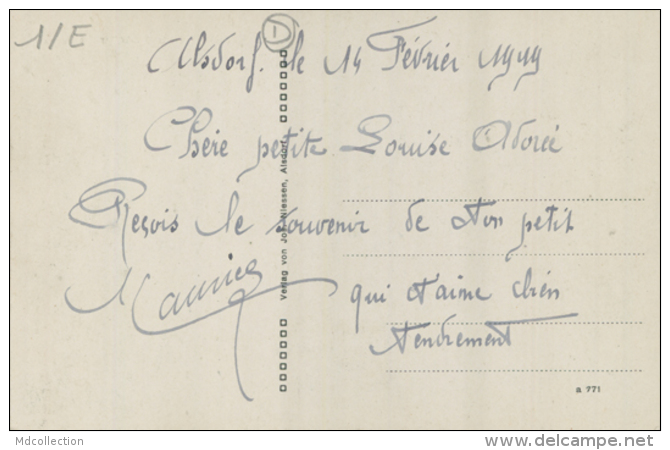 1/E
1
Alsdorf. le 14 Février 1919
Chère petite Louise Adorée
Reçois le souvenir de ton petit
Maurice qui t'aime bien
tendrement
Verlag von Joh. Niessen, Alsdorf.
a 771
Mdcollection
www.delcampe.net